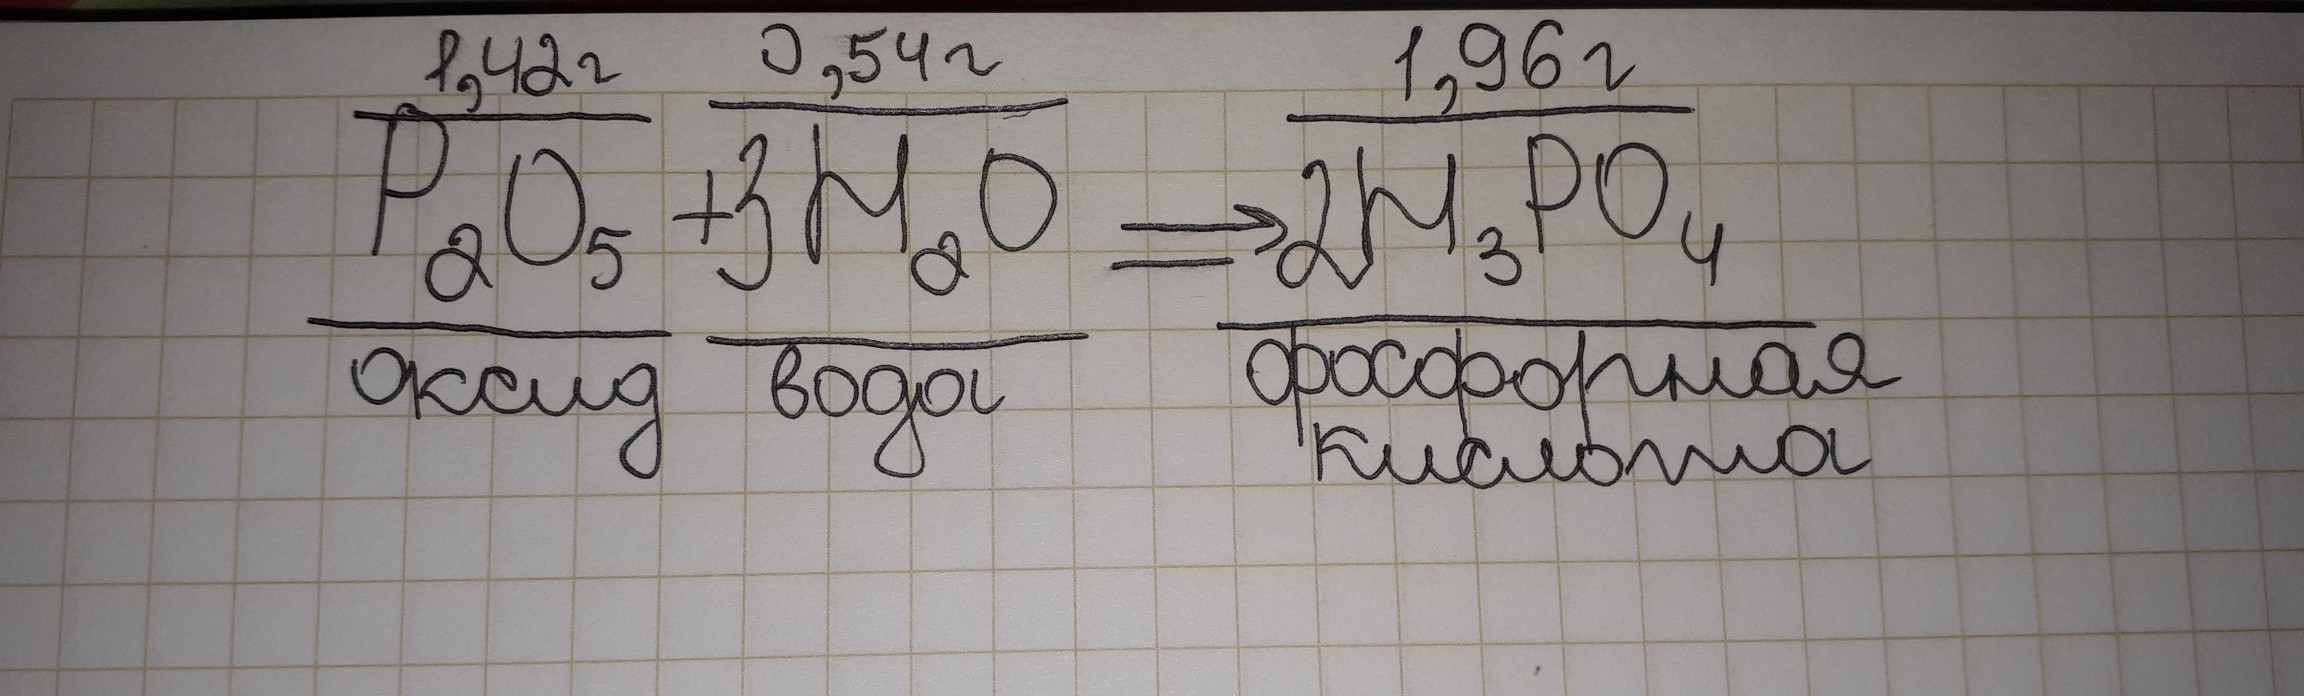 1,42г 0,54г 1,96г
P₂O₅ +3H₂O ⇒ 2H₃PO₄
оксид вода фосфорная
кислота